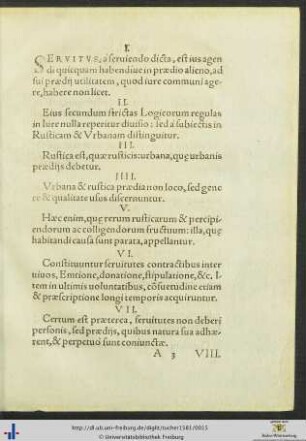 I.
SERVITVS, à seruiendo dicta, est ius agen
di quicquam habendiue in prædio alieno, ad
sui prædij vtilitatem, quod iure communi age
re, habere non licet.
II.
Eius secundum strictas Logicorum regulas
in Iure nulla reperitur diuisio: sed à subiectis in
Rusticam & Vrbanam distinguitur.
III.
Rustica est, quæ rusticis: urbana, quę urbanis
prædijs debetur.
IIII.
Vrbana & rustica prædia non loco, sed gene
re & qualitate usus discernuntur.
V.
Hæc enim, quę rerum rusticarum & percipi-
endorum ac colligendorum fructuum: illa, quę
habitandi causa sunt parata, appellantur.
VI.
Constituuntur seruitutes contractibus inter
uiuos, Emtione, donatione, stipulatione, &c. I-
tem in ultimis uoluntatibus, cōsuetudine etiam
& præscriptione longi temporis acquiruntur.
VII.
Certum est præterea, seruitutes non deberi
personis, sed prædijs, quibus natura sua adhæ-
rent, & perpetuò sunt coniunctæ.
A 3 VIII.
© Universitätsbibliothek Freiburg